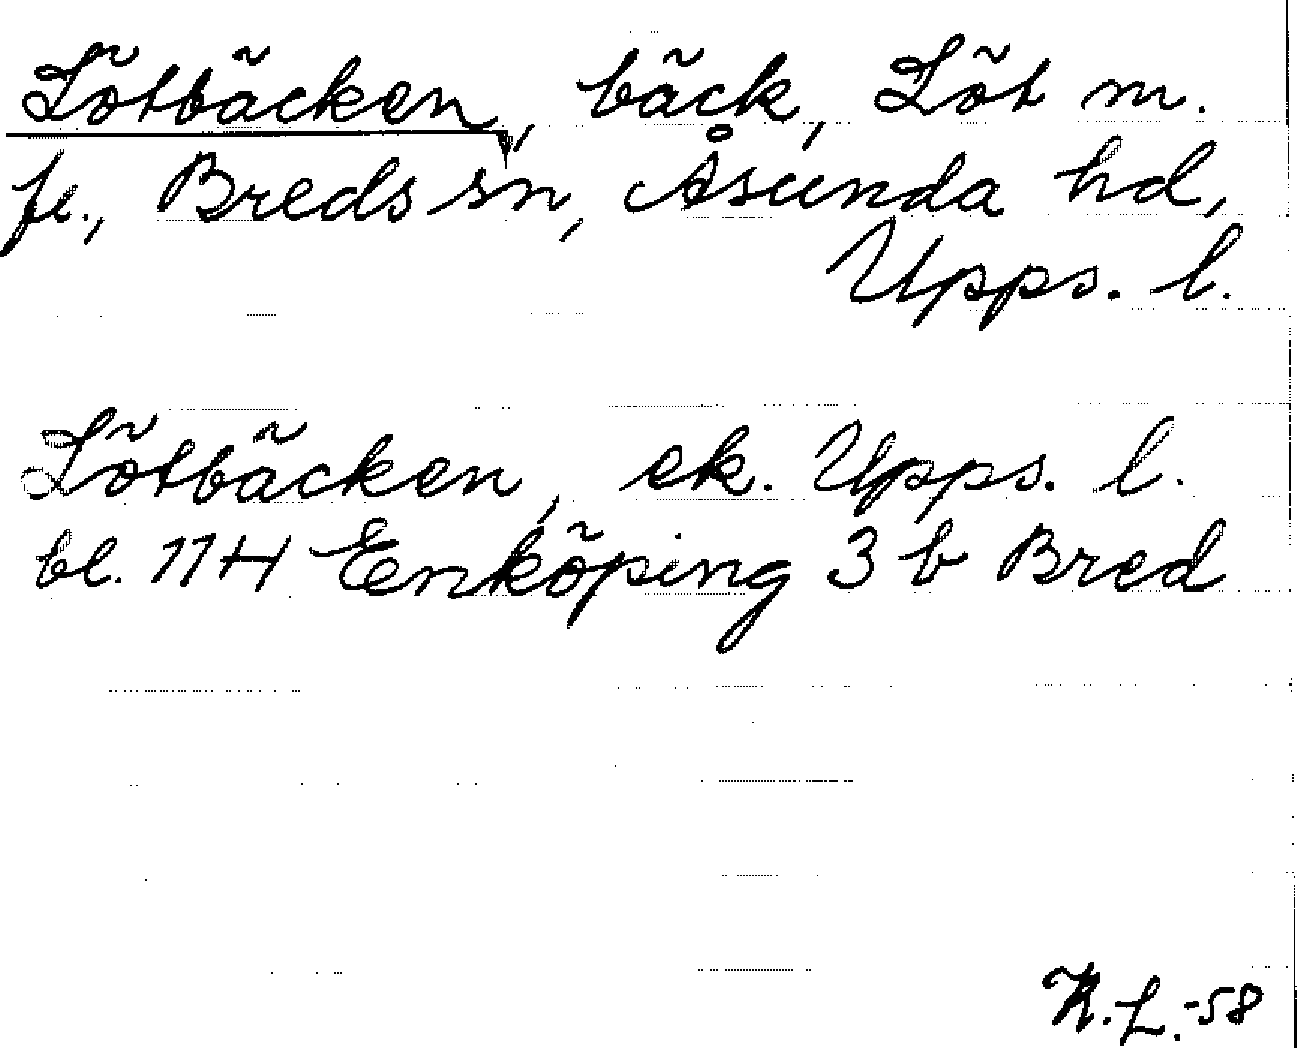 Lötbäcken, bäck, Löt m.
fl., Breds sn, Åsunda hd,
Upps. l.
Lötbäcken, ek. Upps. l.
bl. 11H Enköping 3 b Bred
K.L.-58